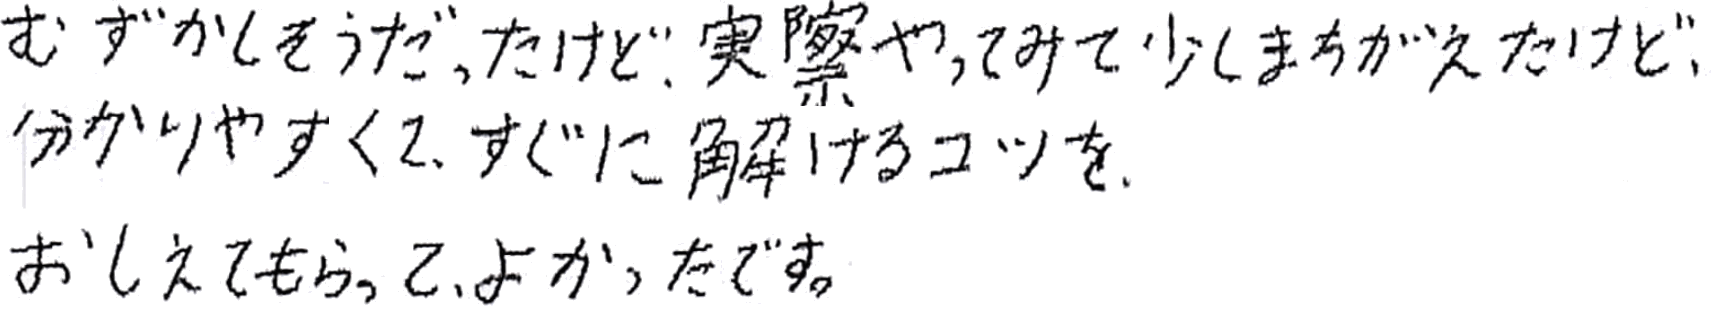 むずかしそうだったけど、実際やってみて少しまちがえたけど、
分かりやすくて、すぐに解けるコツを、
おしえてもらって、よかったです。